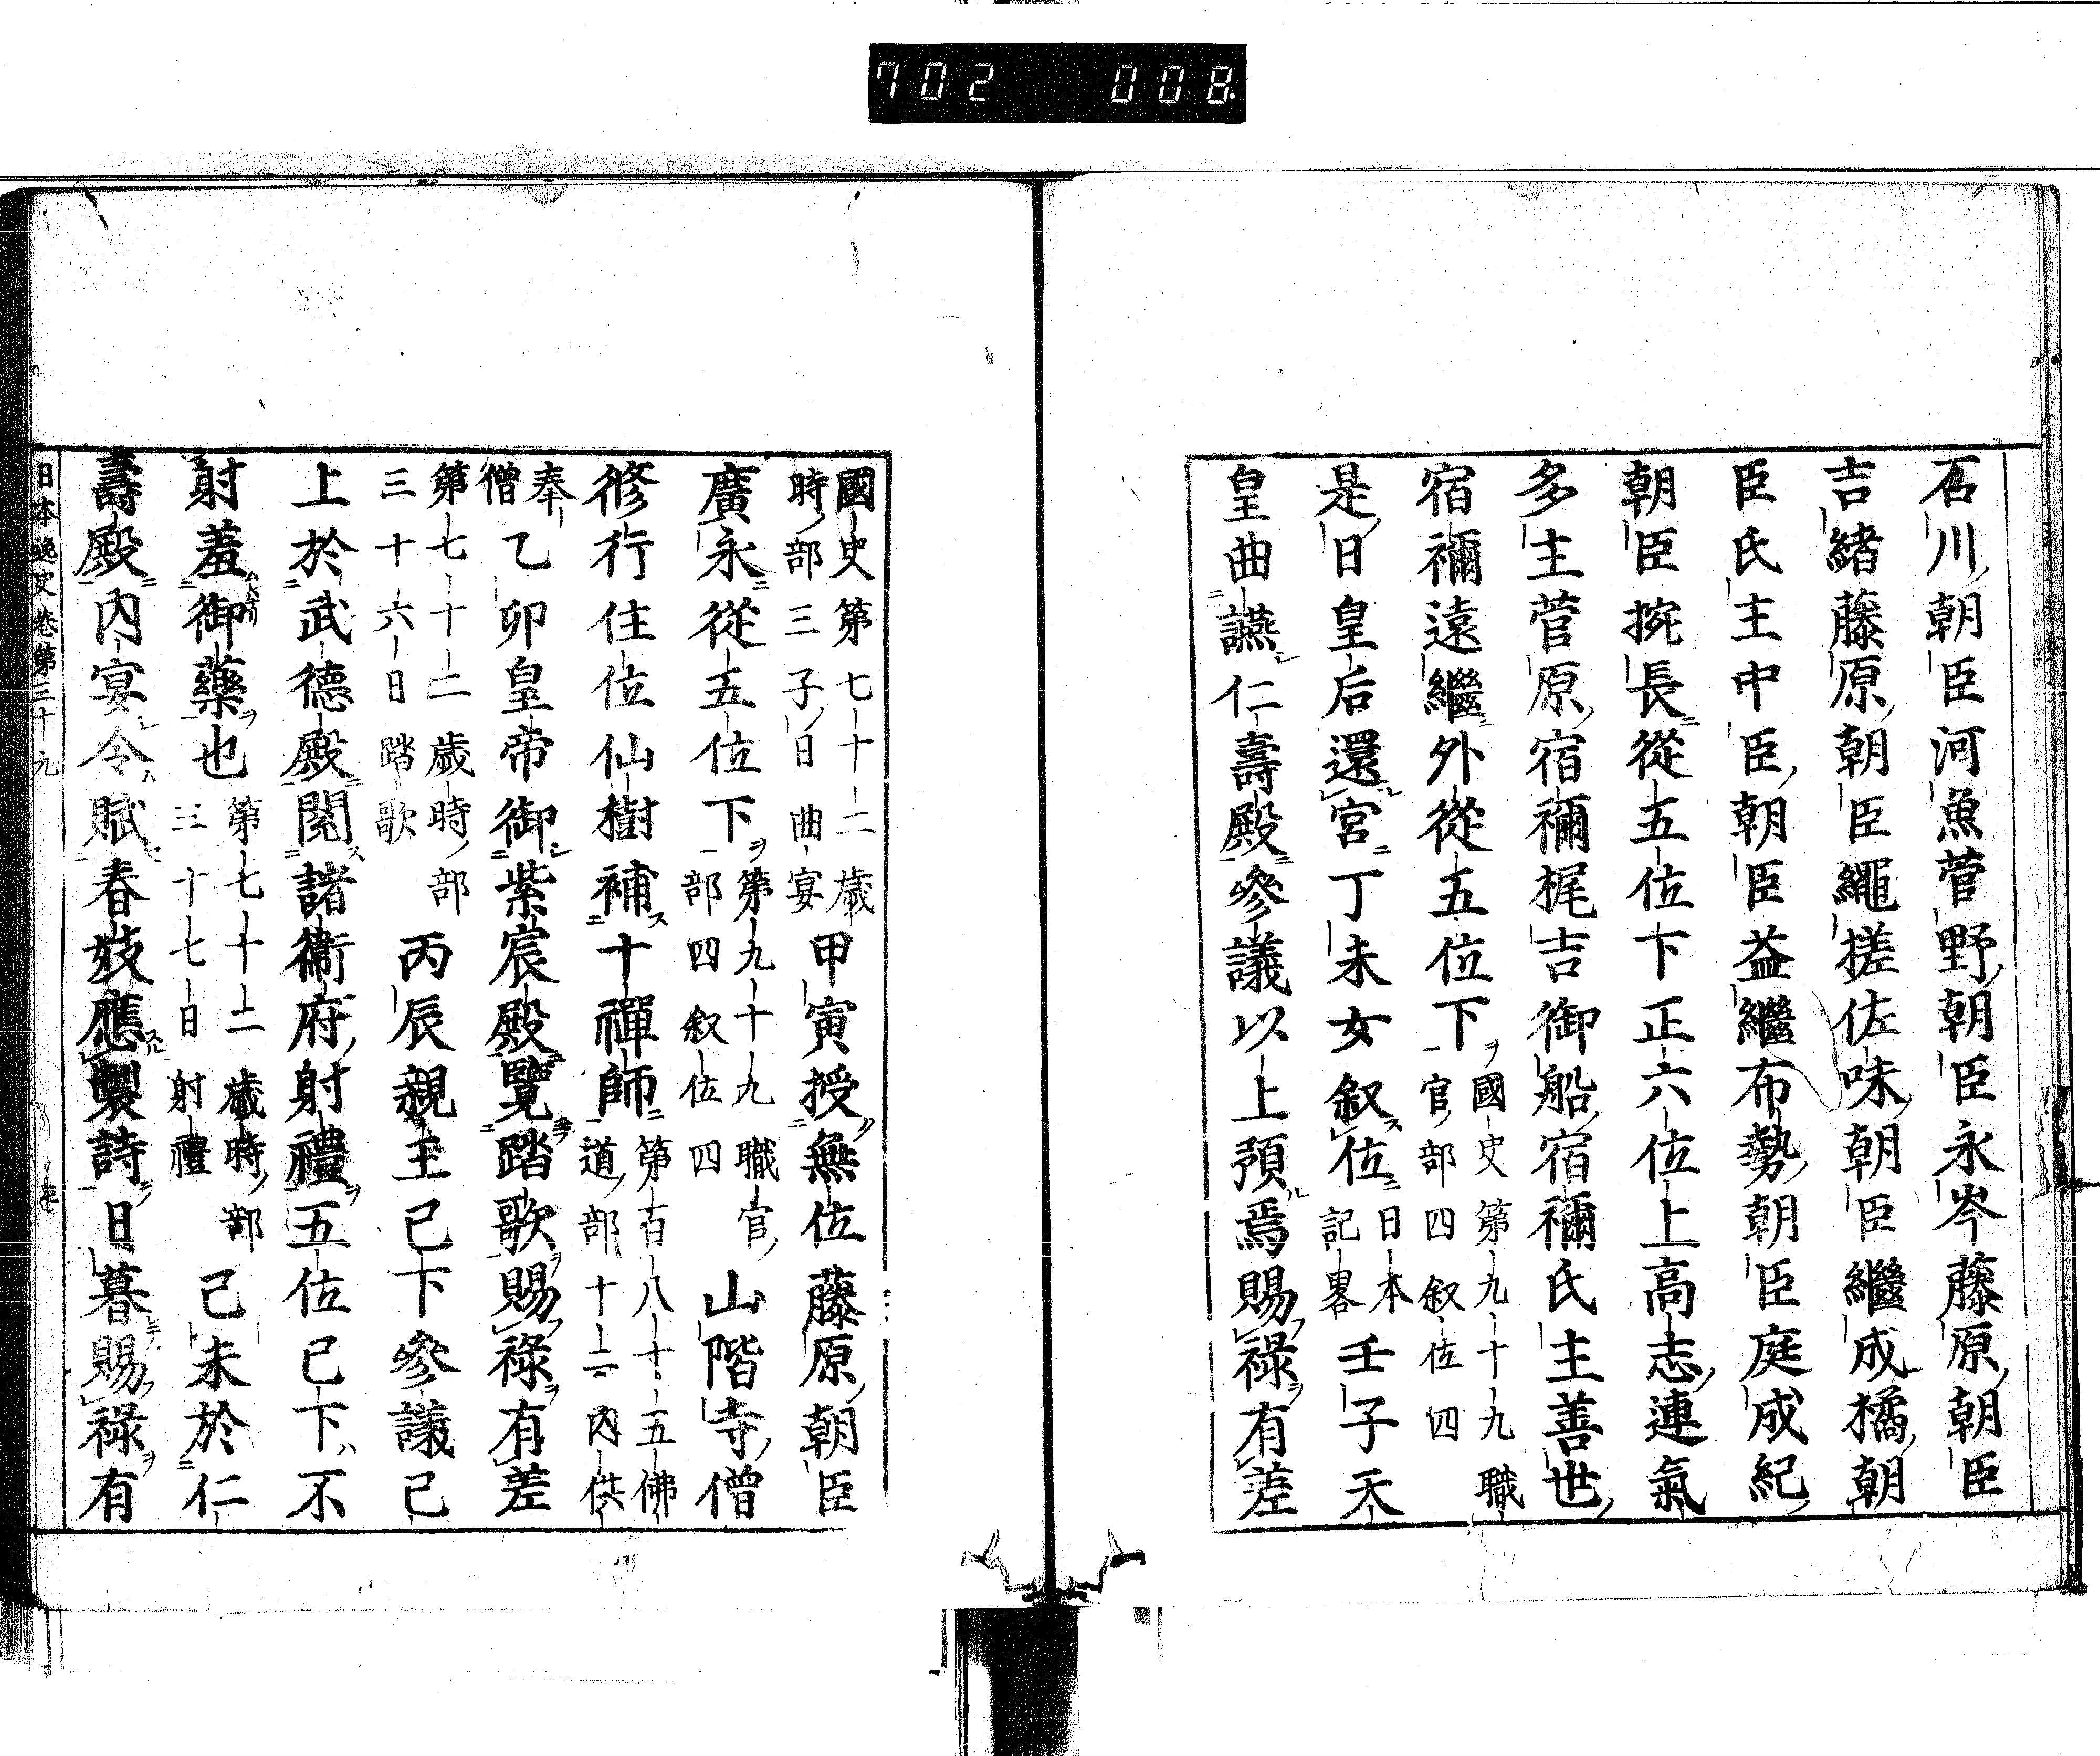 702 008
石川朝臣河魚菅野朝臣永岑藤原朝臣
吉緒藤原朝臣繩搓佐味朝臣繼成橘朝
臣氏主中臣朝臣益繼布勢朝臣庭成紀
朝臣捥長從五位下正六位上高志連氣
多主菅原宿禰梶吉御船宿禰氏主善世
宿禰遠繼外從五位下
國史第九十九職
官部四叙位四
是日皇后還宮丁未女叙位
日本
記畧
壬子天
皇曲讌仁壽殿參議以上預焉賜祿有差
國史第七十二歳
時部三子日曲宴
甲寅授無位藤原朝臣
廣永從五位下
第九十九職官
部四叙位四
山階寺僧
修行住位仙樹補十禪師
第百八十五佛
道部十二内供
奉
僧
乙卯皇帝御紫宸殿覽踏歌賜祿有差
第七十二歳時部
三十六日踏歌
丙辰親王已下參議已
上於武德殿閱諸衞府射禮五位已下不
射羞御藥也
第七十二歳時部
三十七日射禮
己未於仁
壽殿内宴令賦春妓應製詩日暮賜祿有
日本逸史卷第三十九